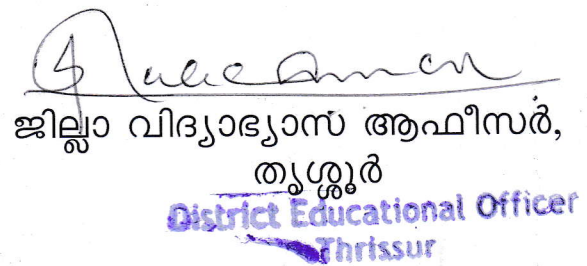 ജില്ലാ വിദ്യാഭ്യാസ ആഫീസർ,
തൃശ്ശൂർ
District Educational Officer
Thrissur